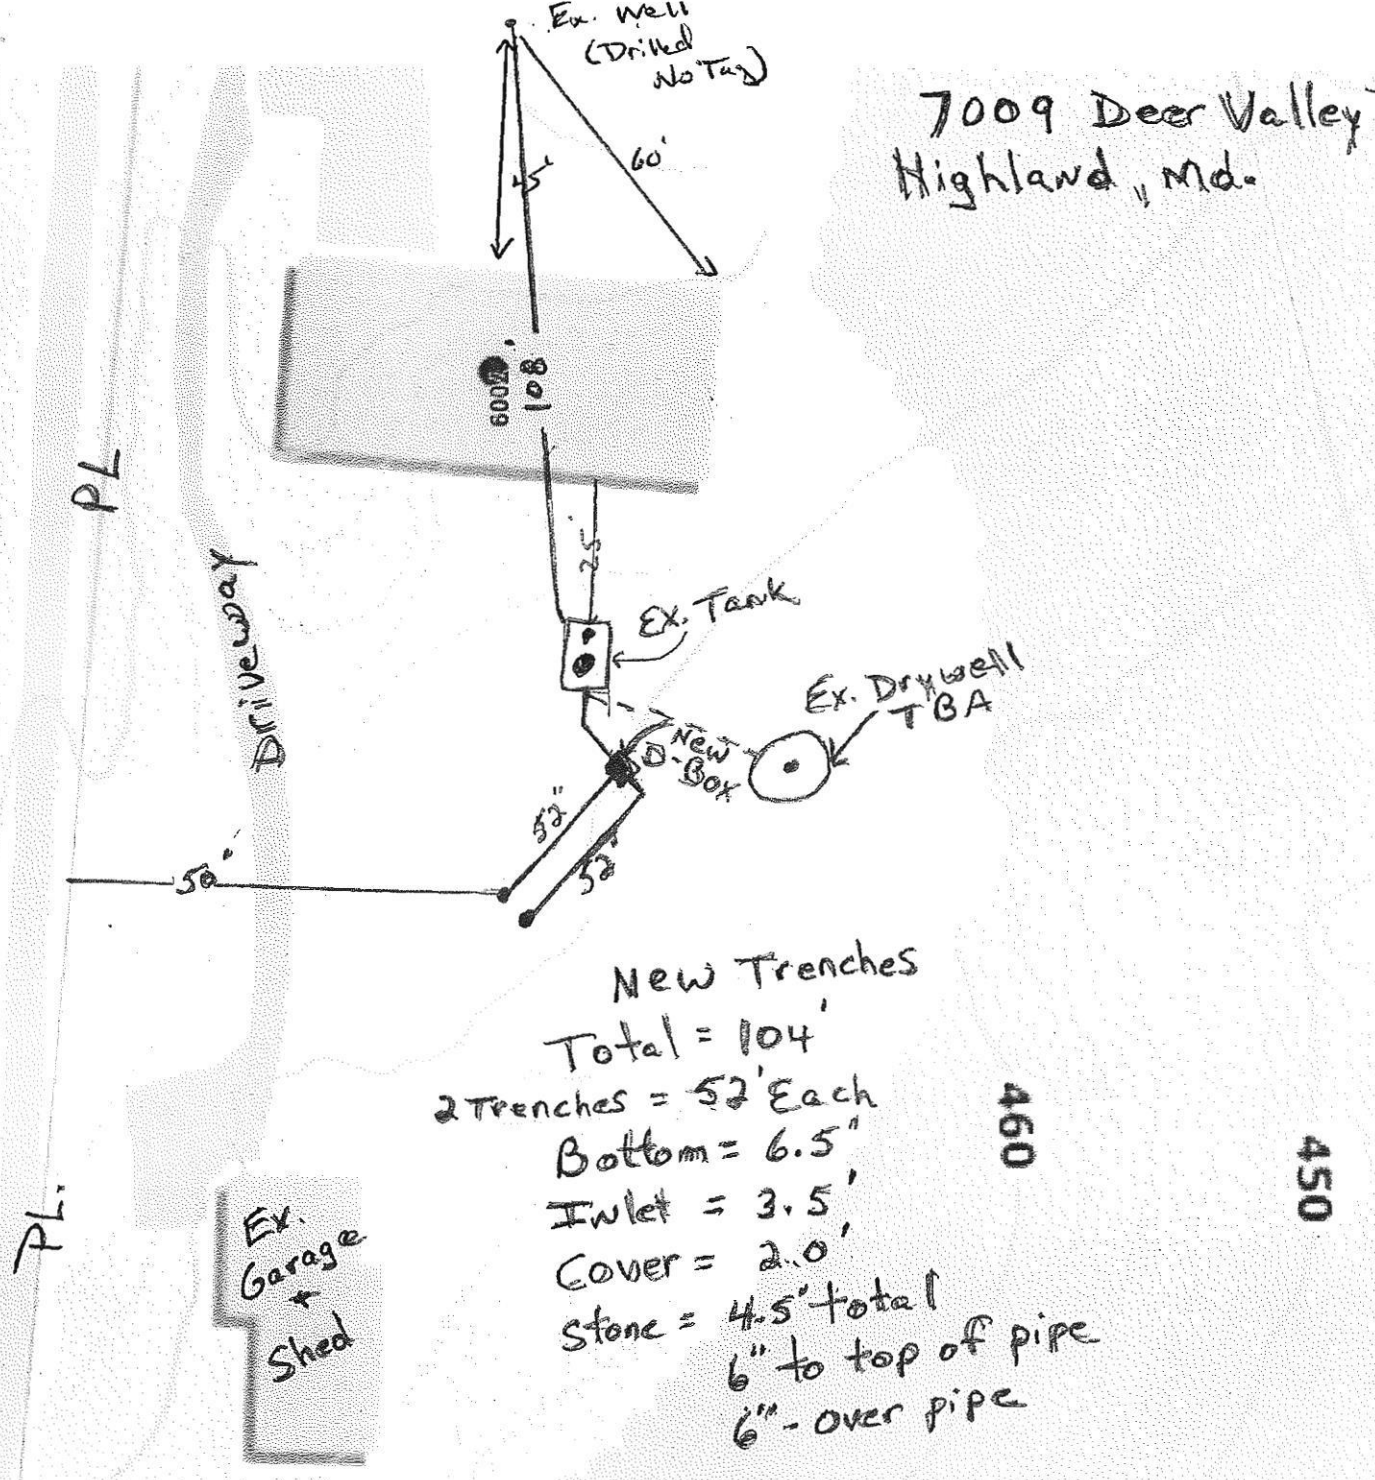 Ex. Well
(Drilled
No Tag)
7009 Deer Valley
Highland, Md.
45'
60'
108
PL
25
Ex. Tank
Driveway
Ex. Drywell
TBA
New
D-Box
52"
52'
50'
New Trenches
Total = 104'
2 Trenches = 52' Each
Bottom = 6.5"
Inlet = 3.5'
Cover = 2.0'
Stone = 4.5' total
6" to top of pipe
6"- over pipe
460
450
PL.
Ex.
Garage
+
Shed